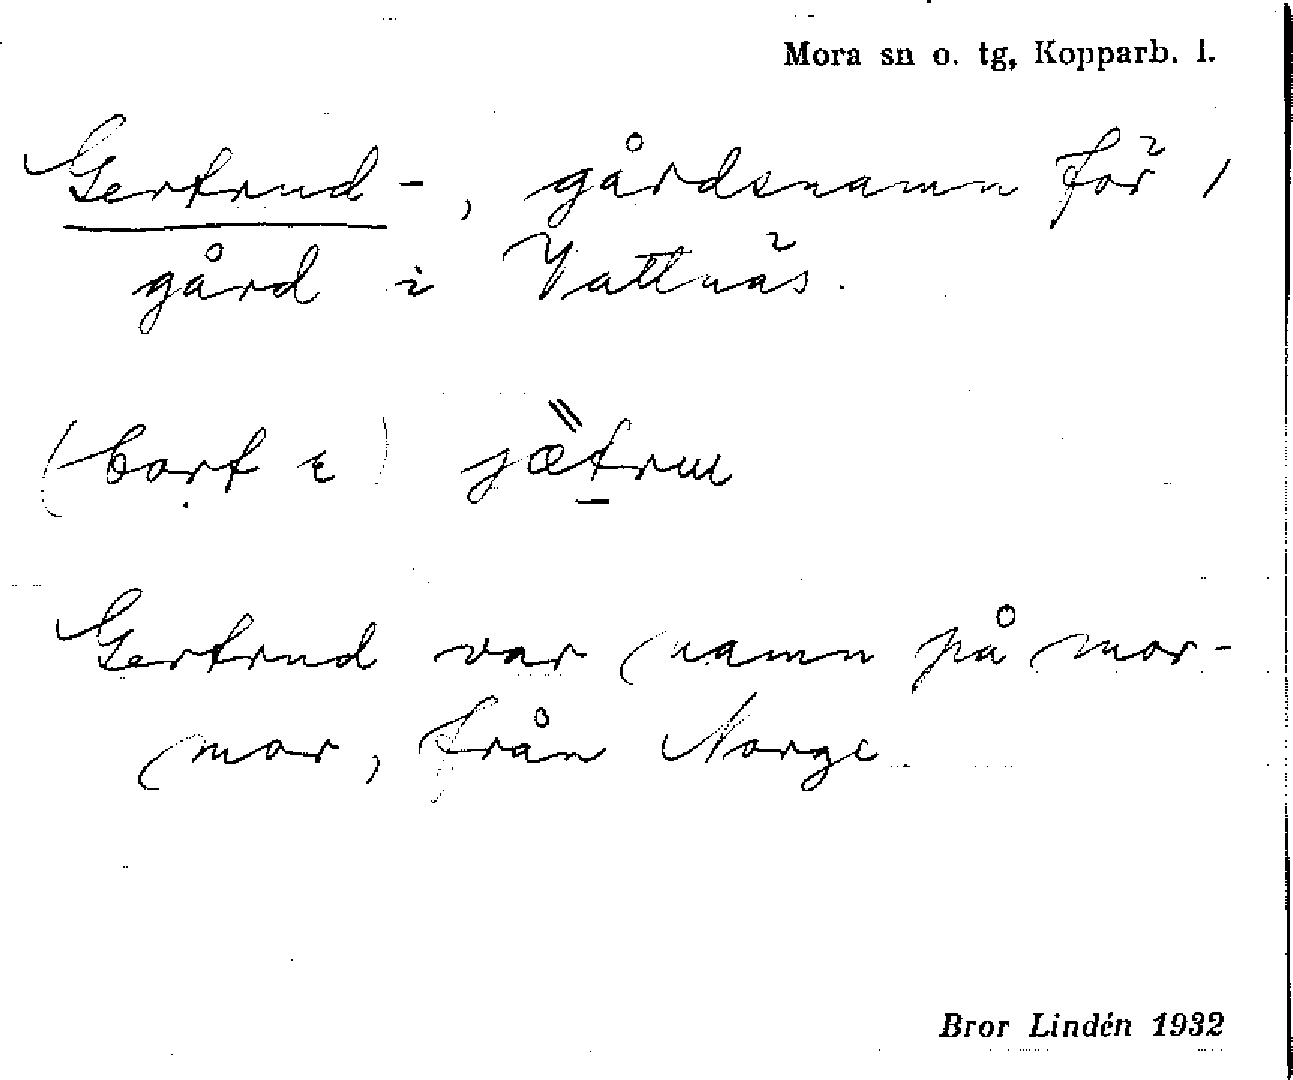 Mora sn o. tg, Kopparb. l.
Gertrud-, gårdsnamn för 1
gård i Vattnäs.
(bort ɪ) jætru
Gertrud var namn på mor-
mor, från Norge.
Bror Lindén 1932